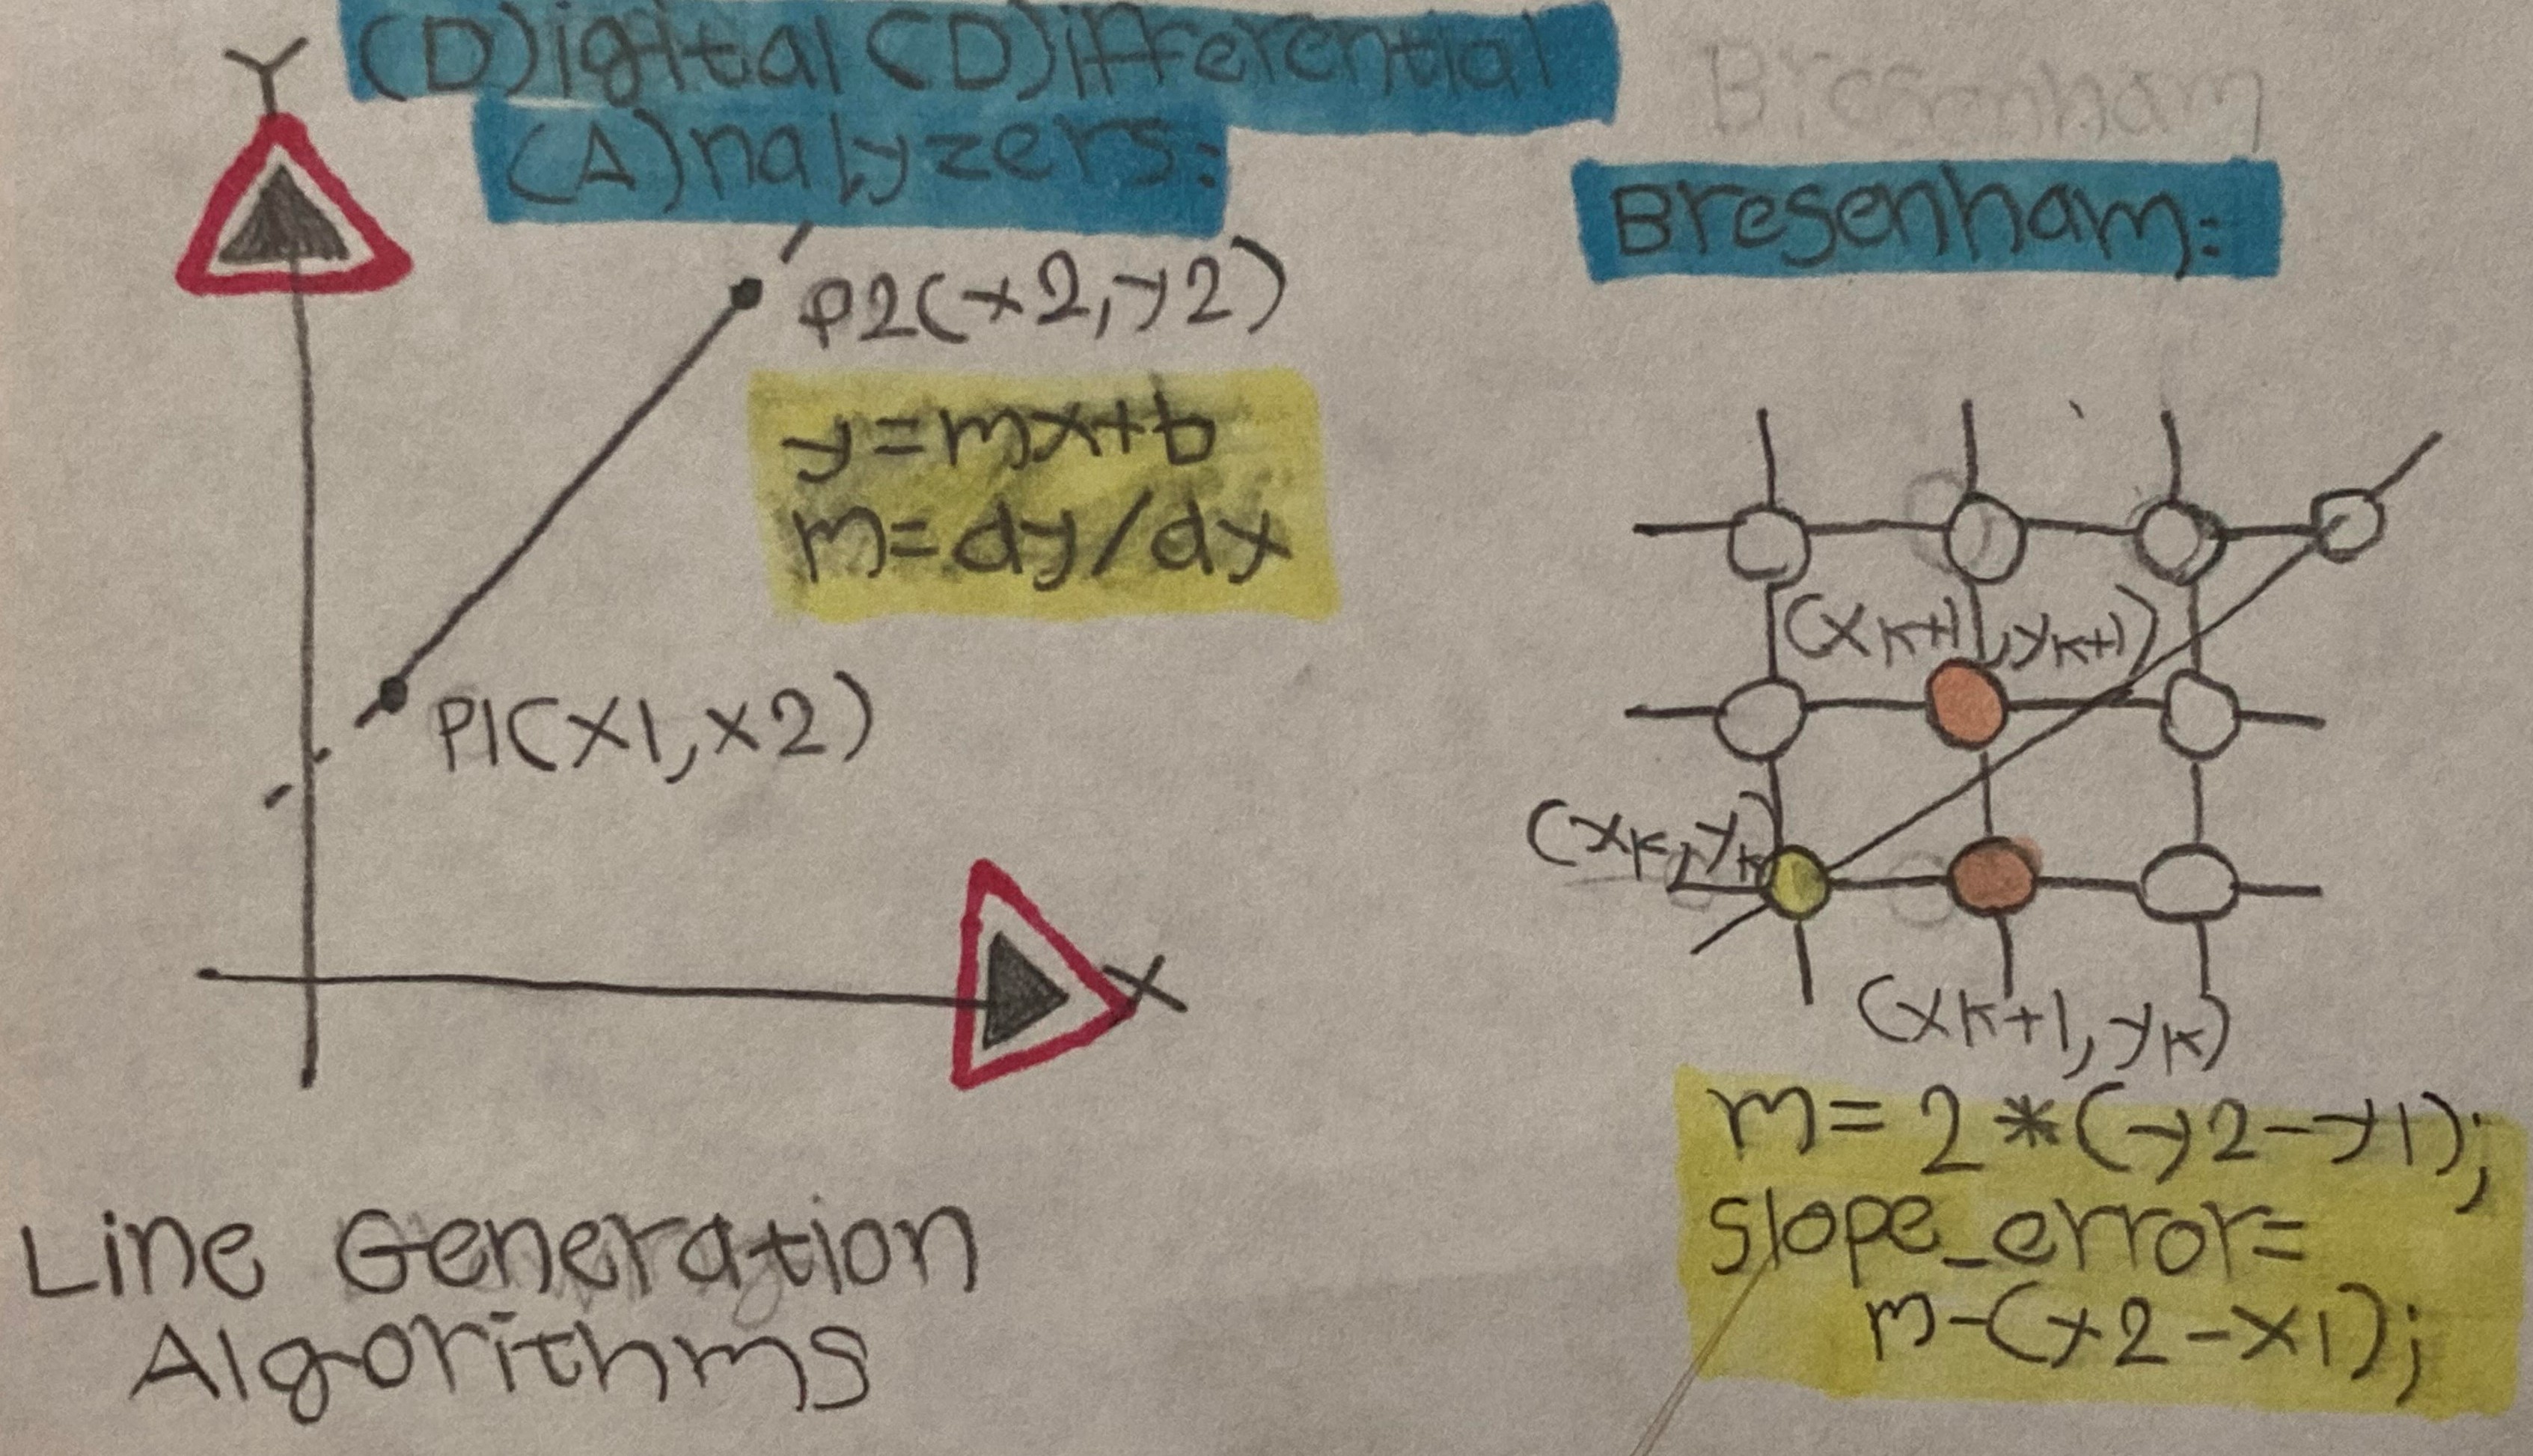 Y
(D)igital (D)ifferential
(A)nalyzers:
P2(x2,y2)
y=mx+b
m=dy/dx
P1(x1,x2)
X
Line Generation
Algorithms
Bresenham
Bresenham:
(xk+1,yk+1)
(xk,yk)
(xk+1,yk)
m=2*(y2-y1);
slope_error=
m-(x2-x1);